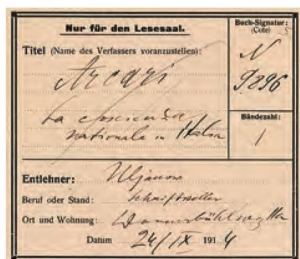 Nur für den Lesesaal.
Buch-Signatur:
(Cote)
Titel (Name des Verfassers voranzustellen):
N
9896
La
nationale in
Bändezahl:
1
Entlehner: Uljanow
Beruf oder Stand: Schriftsteller
Ort und Wohnung:
Datum 24/IX 1914